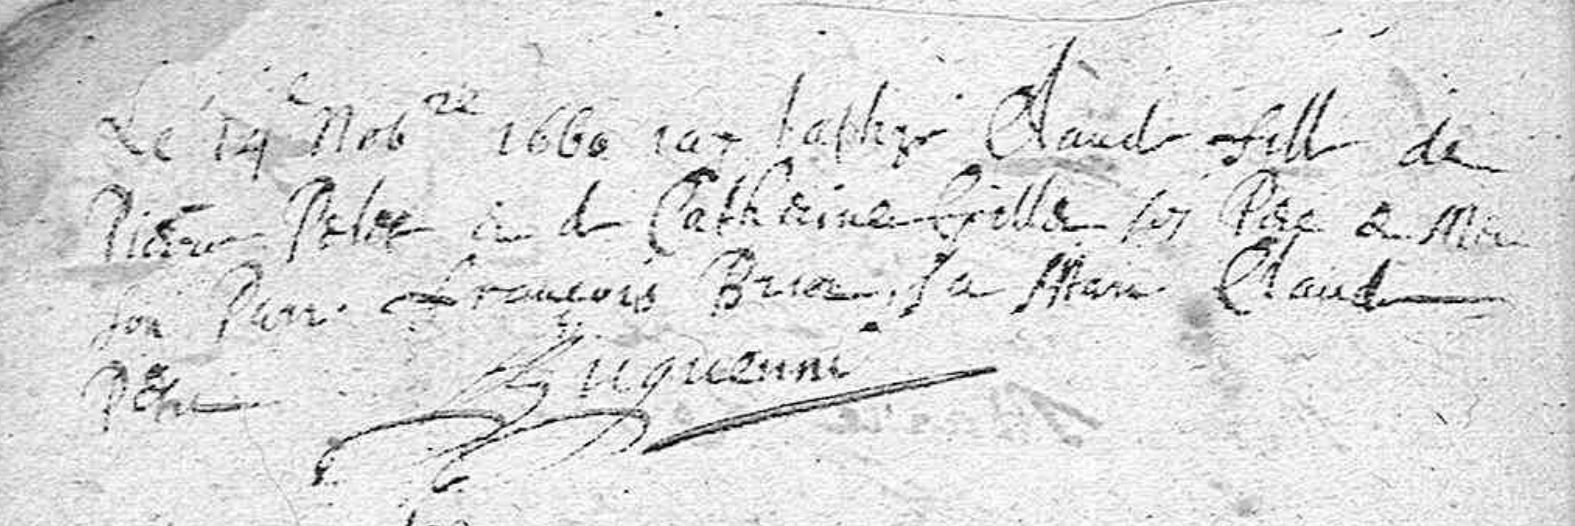 Le 14e Nobre 1660 iay baptizé Claude fille de
Pierre et de Catherine Gille ses Pere et Mere
son Parr. Francois Brice, sa Marr. Claude
Huguenin